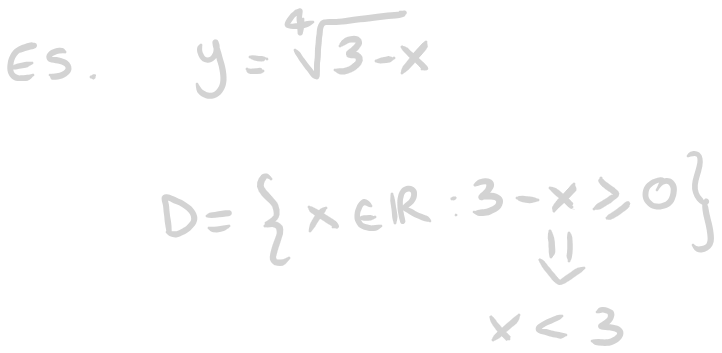 ES. y = ∜3-x
D = { x ∈ ℝ : 3 - x ⩾ 0 }
⇓
x < 3